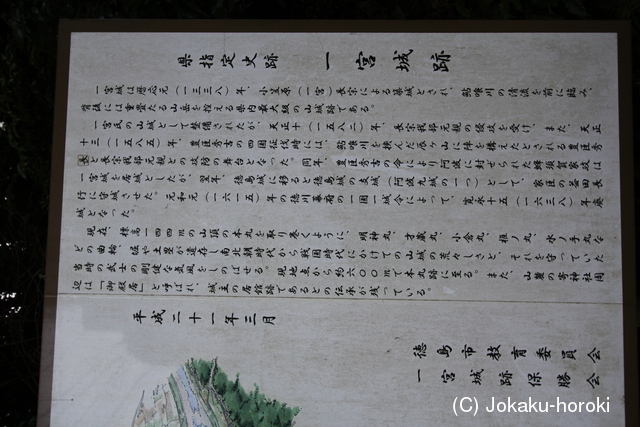 県指定史跡 一宮城跡
一宮城は暦応元(一三三八)年、小笠原(一宮)長宗による築城とされ、鮎喰川の清流を前に臨み、
背後には重畳たる山岳を控える県内最大級の山城跡である。
一宮氏の山城として整備されたが、天正十(一五八二)年、長宗我部元親の侵攻を受け、また、天正
十三(一五八五)年、豊臣秀吉の四国征伐時には、鮎喰川を挟んだ辰ヶ山に陣を構えたとされる豊臣秀
長と長宗我部元親との攻防の舞台となった。同年、豊臣秀吉の命により阿波に封ぜられた蜂須賀家政は
一宮城を居城としたが、翌年、徳島城に移ると徳島城の支城(阿波九城の一つ)として、家臣の益田長
行に守城させた。元和元(一六一五)年の徳川幕府の一国一城令によって、寛永十五(一六三八)年廃
城となった。
現在、標高一四四mの山頂の本丸を取り巻くように、明神丸、才蔵丸、小倉丸、椎ノ丸、水ノ手丸な
どの曲輪、堀や土塁が遺存し南北朝時代から戦国時代にかけての山城の荒々しさと、それを守っていた
当時の武士の剛健な気風をしのばせる。現地点から約六〇〇mで本丸跡に至る。また、山麓の寄神社周
辺は「御殿居」と呼ばれ、城主の居館跡であるとの伝承が残っている。
平成二十一年三月
徳島市教育委員会
一宮城跡保勝会
(C) Jokaku-horoki